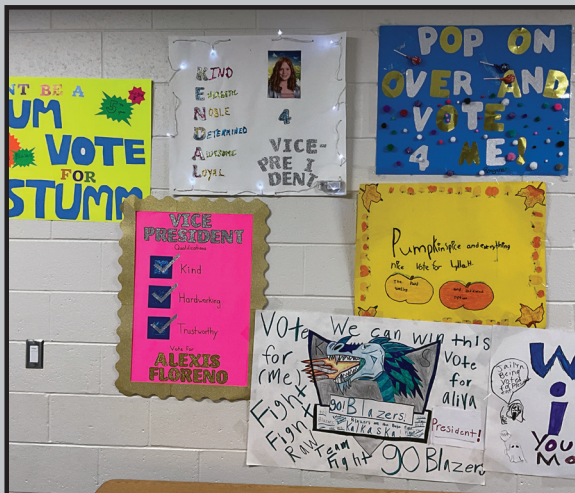 NT BE A
UM
VOTE
FOR
STUMM
KIND
ENERGETIC
NOBLE
DETERMINED
AWESOME
LOYAL
4
VICE-
PRE I
DENT
POP ON
OVER AND
VOTE
4 ME!
VICE
PRESIDENT
Qualifications
Kind
Hardworking
Trustworthy
Vote for
ALEXIS
FLORENO
Pumpkin spice and everything
nice Vote for
VOte
for
(Me)
We can win this
Vote
for
aliva
President!
Fight
Fight
Raw
Team
Fight
go! Blazers!
KalKaska
go Blazer
W
i
You
Mo